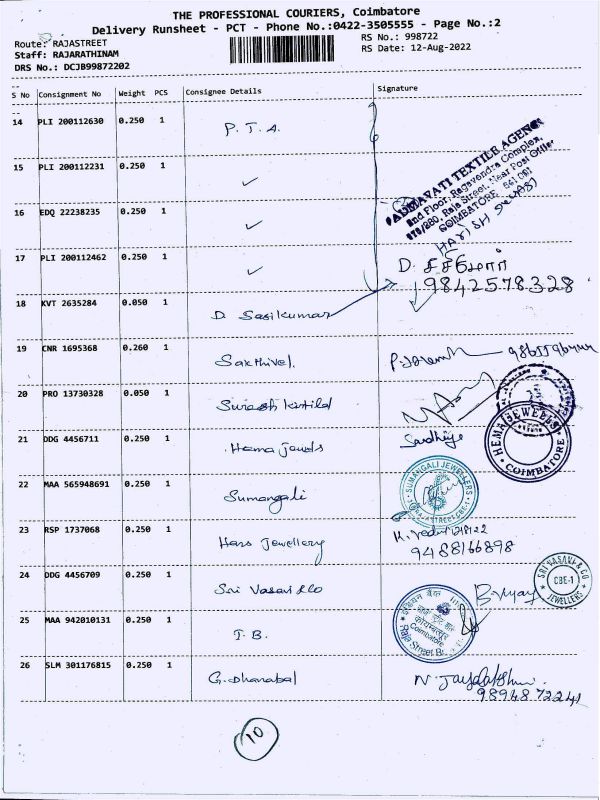 THE PROFESSIONAL COURIERS, Coimbatore
Delivery Runsheet - PCT - Phone No.:0422-3505555 - Page No.:2
Route: RAJASTREET
RS No.: 998722
Staff: RAJARATHINAM
RS Date: 12-Aug-2022
DRS No.: DCJB99872202
S No Consignment No Weight PCS Consignee Details Signature
14 PLI 200112630 0.250 1 P.T.A.
15 PLI 200112231 0.250 1 ✓
PADMAVATI TEXTILE AGENCY
2nd Floor, Ragavendra Complex,
Raja Street, Near Post Office
COIMBATORE 641 001
16 EDQ 22238235 0.250 1 ✓
HARISH
17 PLI 200112462 0.250 1 ✓
D. சசிகுமார்
9842578328
18 KVT 2635284 0.050 1 D. Sasikumar
19 CNR 1695368 0.260 1 Sakthivel.
20 PRO 13730328 0.050 1
21 DDG 4456711 0.250 1 Hema Jewels
HEMA JEWELS
COIMBATORE
22 MAA 565948691 0.250 1 Sumangali
SUMANGALI JEWELLERS
23 RSP 1737068 0.250 1 Hars Jewellery
9488166898
24 DDG 4456709 0.250 1 Sri Vasavi &Co
B. Vijay
SRI VASAVI & CO
CBE-1
JEWELLERS
25 MAA 942010131 0.250 1 I.B.
इंडियन बैंक
कोयम्बत्तूर
Coimbatore
Raja Street Br.
26 SLM 301176815 0.250 1 G. Dhanabal
N. Jayalakshmi
9894872241
10